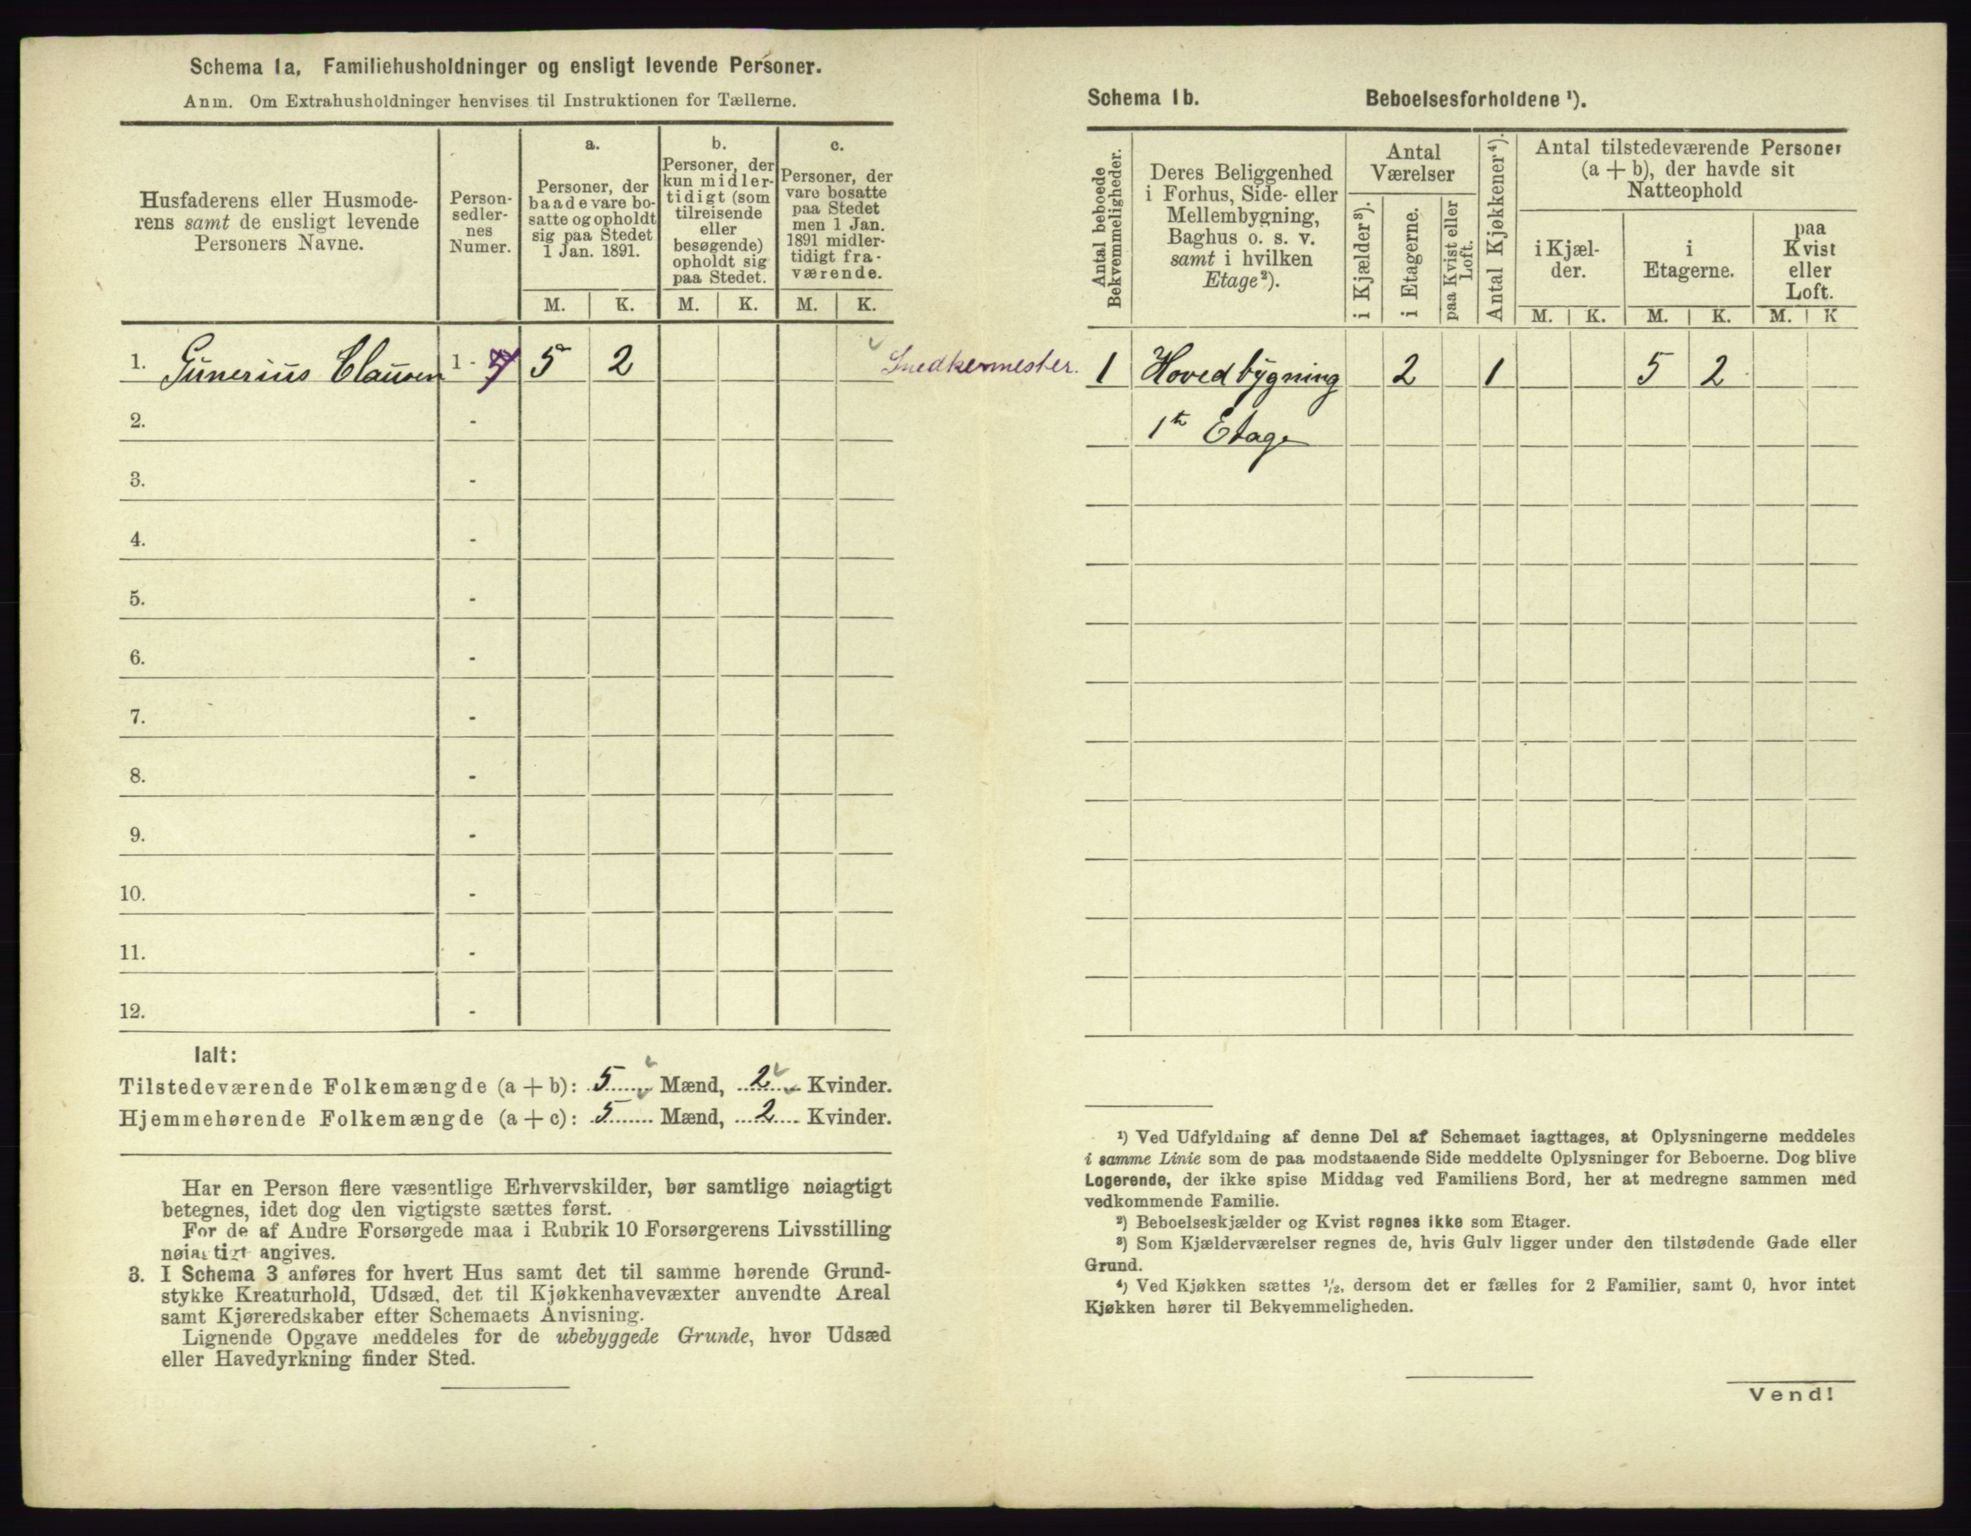 Schema 1a, Familiehusholdninger og ensligt levende Personer.
Anm. Om Extrahusholdninger henvises til Instruktionen for Tællerne.
Husfaderens eller Husmode-
rens samt de ensligt levende
Personers Navne.
Person-
sedler-
nes
Numer.
a.
Personer, der
baade vare bo-
satte og opholdt
sig paa Stedet
1 Jan. 1891.
b.
Personer, der
kun midler-
tidigt (som
tilreisende
eller
besøgende)
opholdt sig
paa Stedet.
c.
Personer, der
vare bosatte
paa Stedet
men 1 Jan.
1891 midler-
tidigt fra-
værende.
M. K. M. K. M. K.
1. Gunerius Clausen 1 - 7 5 2 Snedkermester.
2. -
3. -
4. -
5. -
6. -
7. -
8. -
9. -
10. -
11. -
12. -
Ialt:
Tilstedeværende Folkemængde (a + b): 5 Mænd, 2 Kvinder.
Hjemmehørende Folkemængde (a + c): 5 Mænd, 2 Kvinder.
Har en Person flere væsentlige Erhvervskilder, bør samtlige nøiagtigt
betegnes, idet dog den vigtigste sættes først.
For de af Andre Forsørgede maa i Rubrik 10 Forsørgerens Livsstilling
nøiagtigt angives.
3. I Schema 3 anføres for hvert Hus samt det til samme hørende Grund-
stykke Kreaturhold, Udsæd, det til Kjøkkenhavevæxter anvendte Areal
samt Kjøreredskaber efter Schemaets Anvisning.
Lignende Opgave meddeles for de ubebyggede Grunde, hvor Udsæd
eller Havedyrkning finder Sted.
Schema 1b. Beboelsesforholdene ¹).
Antal beboede
Bekvemmeligheder.
Deres Beliggenhed
i Forhus, Side- eller
Mellembygning,
Baghus o. s. v.
samt i hvilken
Etage²).
Antal
Værelser
i Kjælder³).
i Etagerne.
paa Kvist eller
Loft.
Antal Kjøkkener⁴).
Antal tilstedeværende Personer
(a + b), der havde sit
Natteophold
i Kjæl-
der.
i
Etagerne.
paa
Kvist
eller
Loft.
M. K. M. K. M. K
1 Hovedbygning 2 1 5 2
1ᵗᵉ Etage
¹) Ved Udfyldning af denne Del af Schemaet iagttages, at Oplysningerne meddeles
i samme Linie som de paa modstaaende Side meddelte Oplysninger for Beboerne. Dog blive
Logerende, der ikke spise Middag ved Familiens Bord, her at medregne sammen med
vedkommende Familie.
²) Beboelseskjælder og Kvist regnes ikke som Etager.
³) Som Kjælderværelser regnes de, hvis Gulv ligger under den tilstødende Gade eller
Grund.
⁴) Ved Kjøkken sættes ½, dersom det er fælles for 2 Familier, samt 0, hvor intet
Kjøkken hører til Bekvemmeligheden.
Vend!